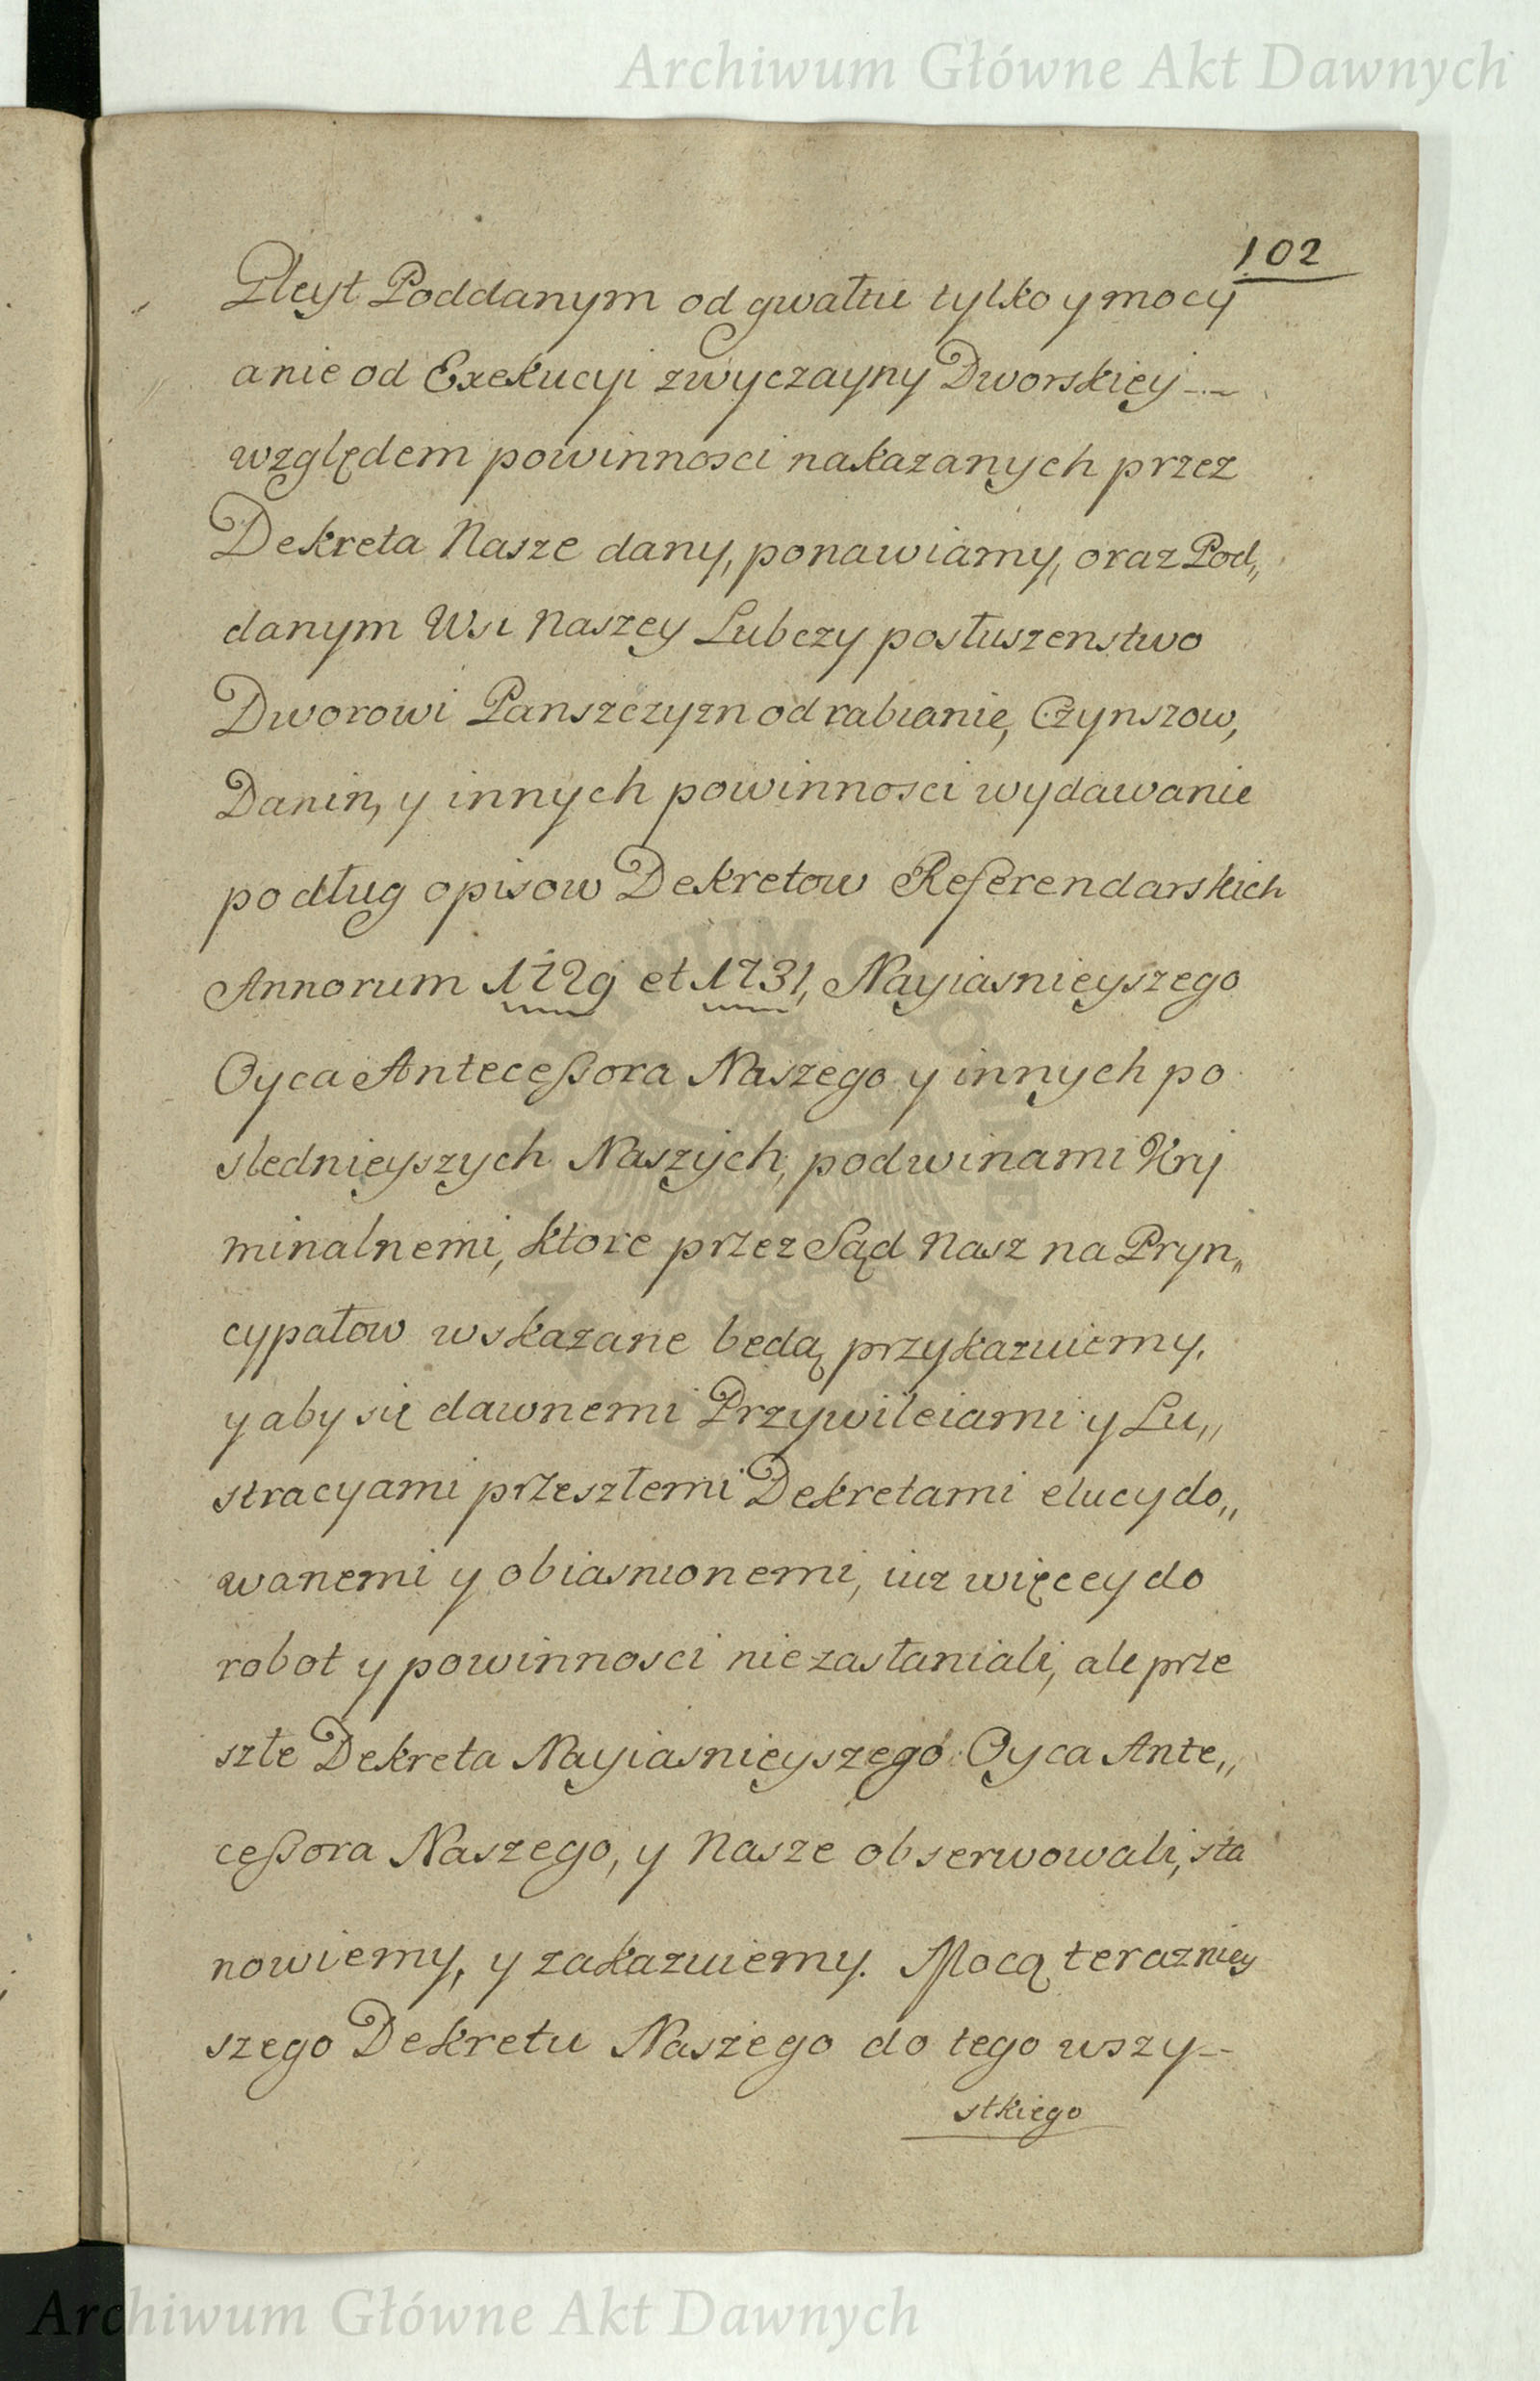 Archiwum Główne Akt Dawnych
102
Gleyt Poddanym od gwałtu tylko y mocy
a nie od Exekucyi zwyczayny Dworskiey
względem powinnosci nakazanych przez
Dekreta Nasze dany, ponawiamy, oraz Pod„
danym Wsi Naszey Lubczy posłuszenstwo
Dworowi Panszczyzn odrabianie, Czynszow,
Danin, y innych powinnosci wydawanie
podług opisow Dekretow Referendarskich
Annorum 1729 et 1731, Nayiasnieyszego
Oyca Anteceßora Naszego y innych po
slednieyszych Naszych, pod winami Kry
minalnemi, ktore przez Sąd Nasz na Pryn„
cypałow wskazane będą przykazuiemy,
y aby się dawnemi Przywileiami y Lu„
stracyami przeszłemi Dekretami elucydo„
wanemi y obiasnionemi, iuz więcey do
robot y powinnosci nie zasłaniali, ale prze
szłe Dekreta Nayiasnieyszego Oyca Ante„
ceßora Naszego, y Nasze obserwowali, sta
nowiemy, y zakazuiemy. Mocą terazniey
szego Dekretu Naszego do tego wszy--
stkiego
Archiwum Główne Akt Dawnych